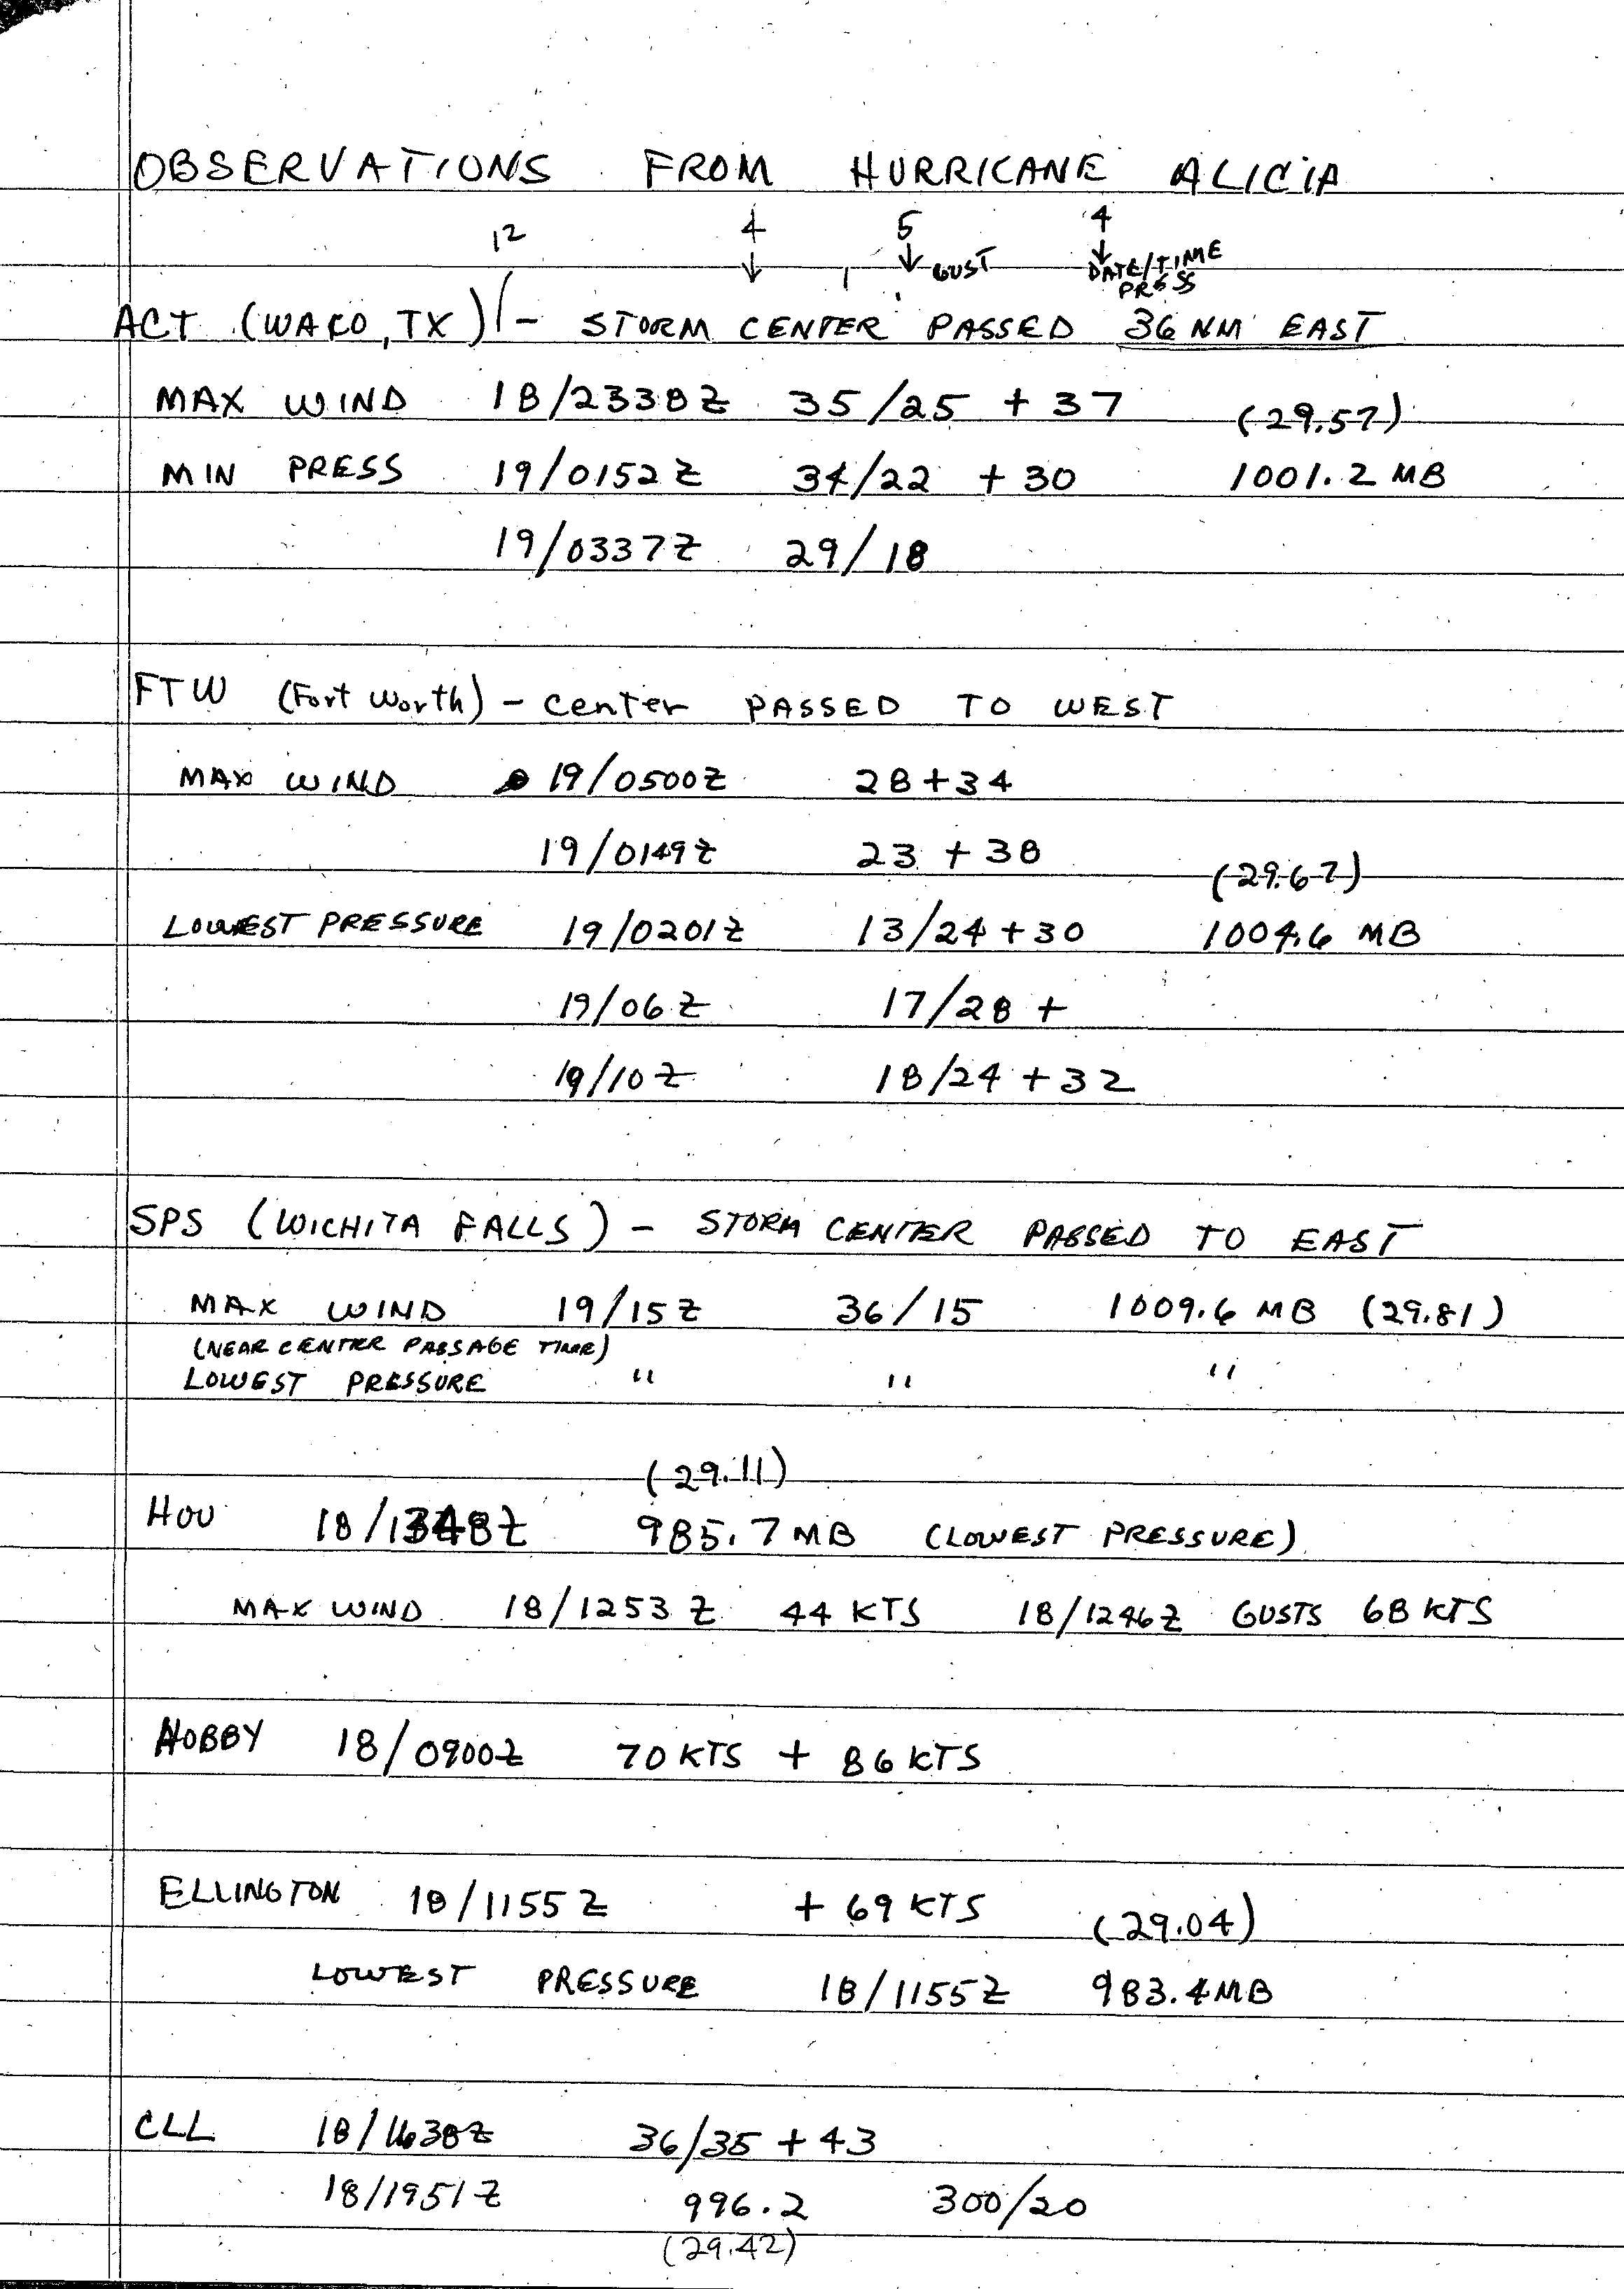 OBSERVATIONS FROM HURRICANE ALICIA
12 4 5 4
GUST DATE/TIME
PRESS
ACT (WACO, TX) - STORM CENTER PASSED 36 NM EAST
MAX WIND 18/2338Z 35/25 + 37 (29.57)
MIN PRESS 19/0152Z 34/22 + 30 1001.2 MB
19/0337Z 29/18
FTW (Fort Worth) - Center PASSED TO WEST
MAX WIND 19/0500Z 28+34
19/0149Z 23 + 38 (29.67)
LOWEST PRESSURE 19/0201Z 13/24+30 1004.6 MB
19/06Z 17/28 +
19/10Z 18/24 + 32
SPS (WICHITA FALLS) - STORM CENTER PASSED TO EAST
MAX WIND 19/15Z 36/15 1009.6 MB (29.81)
(NEAR CENTER PASSAGE TIME)
LOWEST PRESSURE " " "
(29.11)
HOU 18/1348Z 985.7 MB (LOWEST PRESSURE)
MAX WIND 18/1253Z 44 KTS 18/1246Z GUSTS 68 KTS
HOBBY 18/0900Z 70 KTS + 86 KTS
ELLINGTON 18/1155Z + 69 KTS (29.04)
LOWEST PRESSURE 18/1155Z 983.4MB
CLL 18/1638Z 36/35 + 43
18/1951Z 996.2 300/20
(29.42)